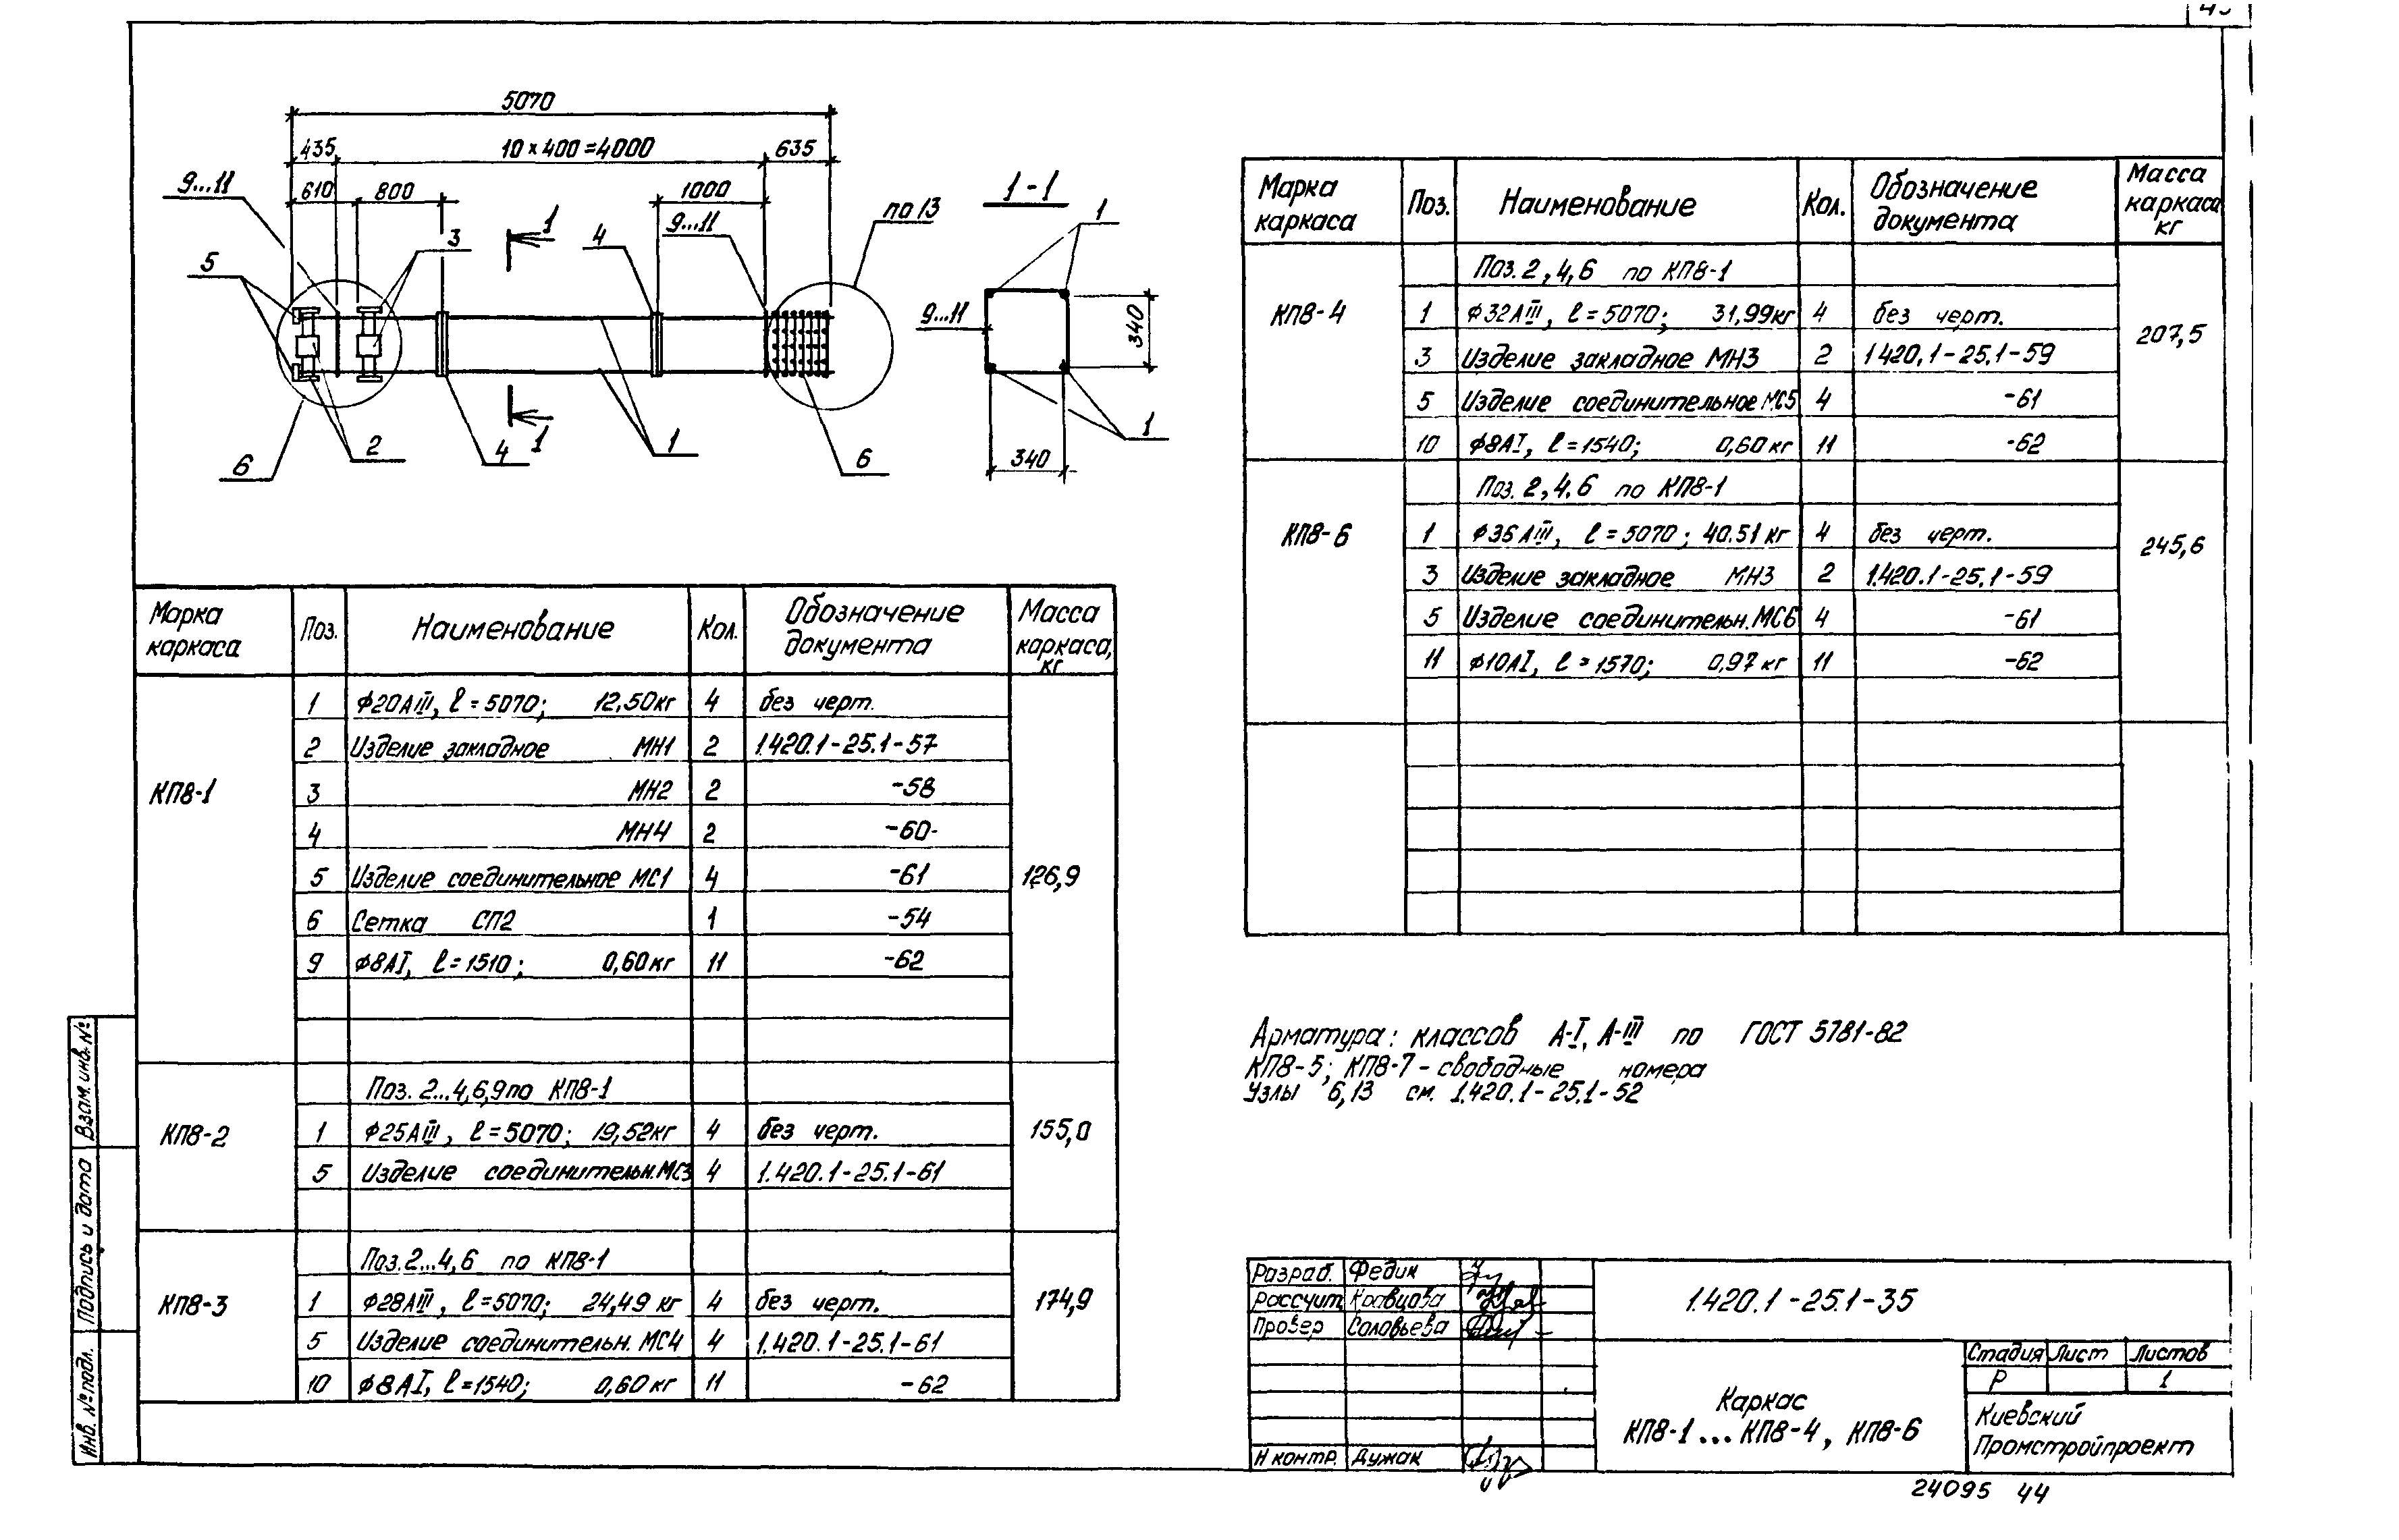 5070
435 10×400=4000 635
610 800 1000
9...11
9...11
по 13
5
3
4
1
1
6
2
4
1
6
1-1
1
9...11
340
340
1
Марка каркаса Поз. Наименование Кол. Обозначение документа Масса каркаса, кг
КП8-1 126,9
1 ф20АIII, ℓ=5070; 12,50кг 4 без черт.
2 Изделие закладное МН1 2 1.420.1-25.1-57
3 МН2 2 -58
4 МН4 2 -60
5 Изделие соединительное МС1 4 -61
6 Сетка СП2 1 -54
9 ф8АI, ℓ=1510; 0,60кг 11 -62
КП8-2 155,0
Поз. 2...4,6,9 по КП8-1
1 ф25АIII, ℓ=5070; 19,52кг 4 без черт.
5 Изделие соединительн. МС3 4 1.420.1-25.1-61
КП8-3 174,9
Поз. 2...4,6 по КП8-1
1 ф28АIII, ℓ=5070; 24,49 кг 4 без черт.
5 Изделие соединительн. МС4 4 1.420.1-25.1-61
10 ф8АI, ℓ=1540; 0,60кг 11 -62
Марка каркаса Поз. Наименование Кол. Обозначение документа Масса каркаса кг
КП8-4 207,5
Поз. 2,4,6 по КП8-1
1 ф32АIII, ℓ=5070; 31,99кг 4 без черт.
3 Изделие закладное МН3 2 1.420.1-25.1-59
5 Изделие соединительное МС5 4 -61
10 ф8АI, ℓ=1540; 0,60кг 11 -62
КП8-6 245,6
Поз. 2,4,6 по КП8-1
1 ф36АIII, ℓ=5070; 40.51кг 4 без черт.
3 Изделие закладное МН3 2 1.420.1-25.1-59
5 Изделие соединительн. МС6 4 -61
11 ф10АI, ℓ=1570; 0,97кг 11 -62
Арматура: классов А-I, А-III по ГОСТ 5781-82
КП8-5; КП8-7 - свободные номера
Узлы 6,13 см. 1.420.1-25.1-52
Инв. № подл. Подпись и дата Взам. инв. №
Разраб. Федик
Рассчит. Кравцова
Провер Соловьева
Н контр. Дужак
1.420.1-25.1-35
Каркас
КП8-1...КП8-4, КП8-6
Стадия Лист Листов
Р 1
Киевский
Промстройпроект
24095 44